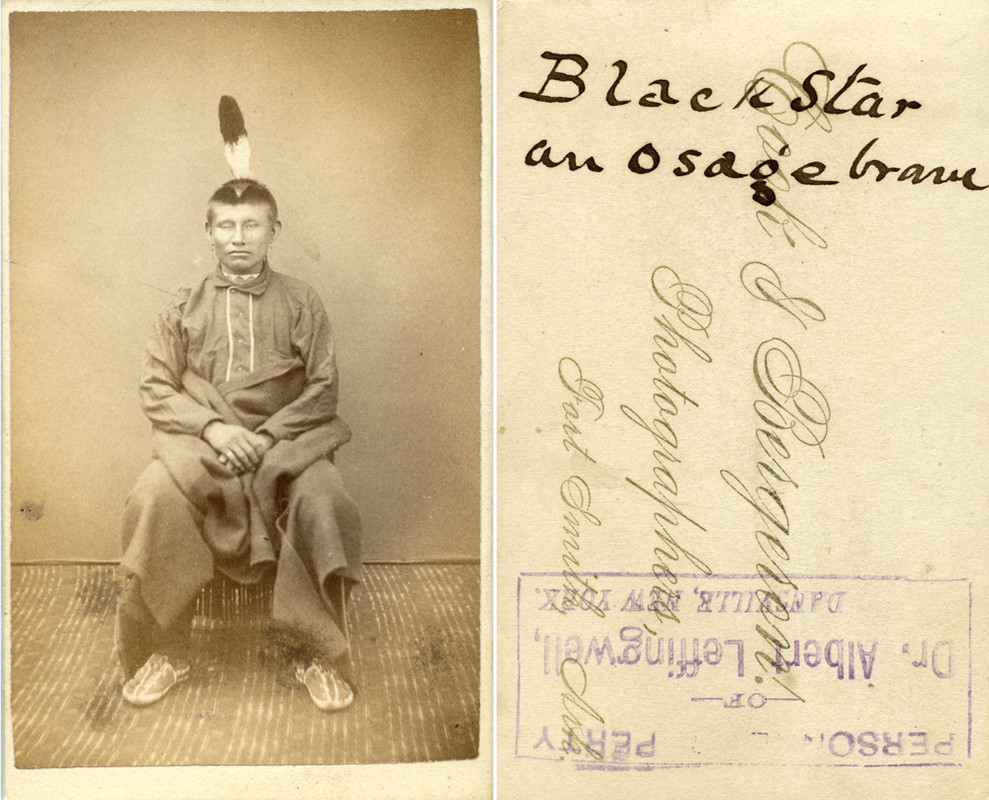 Black Star
an osage brave
Photographers,
Fort Smith Ark.
OF
Dr. Albert Leffingwell,
DANSVILLE, NEW YORK.